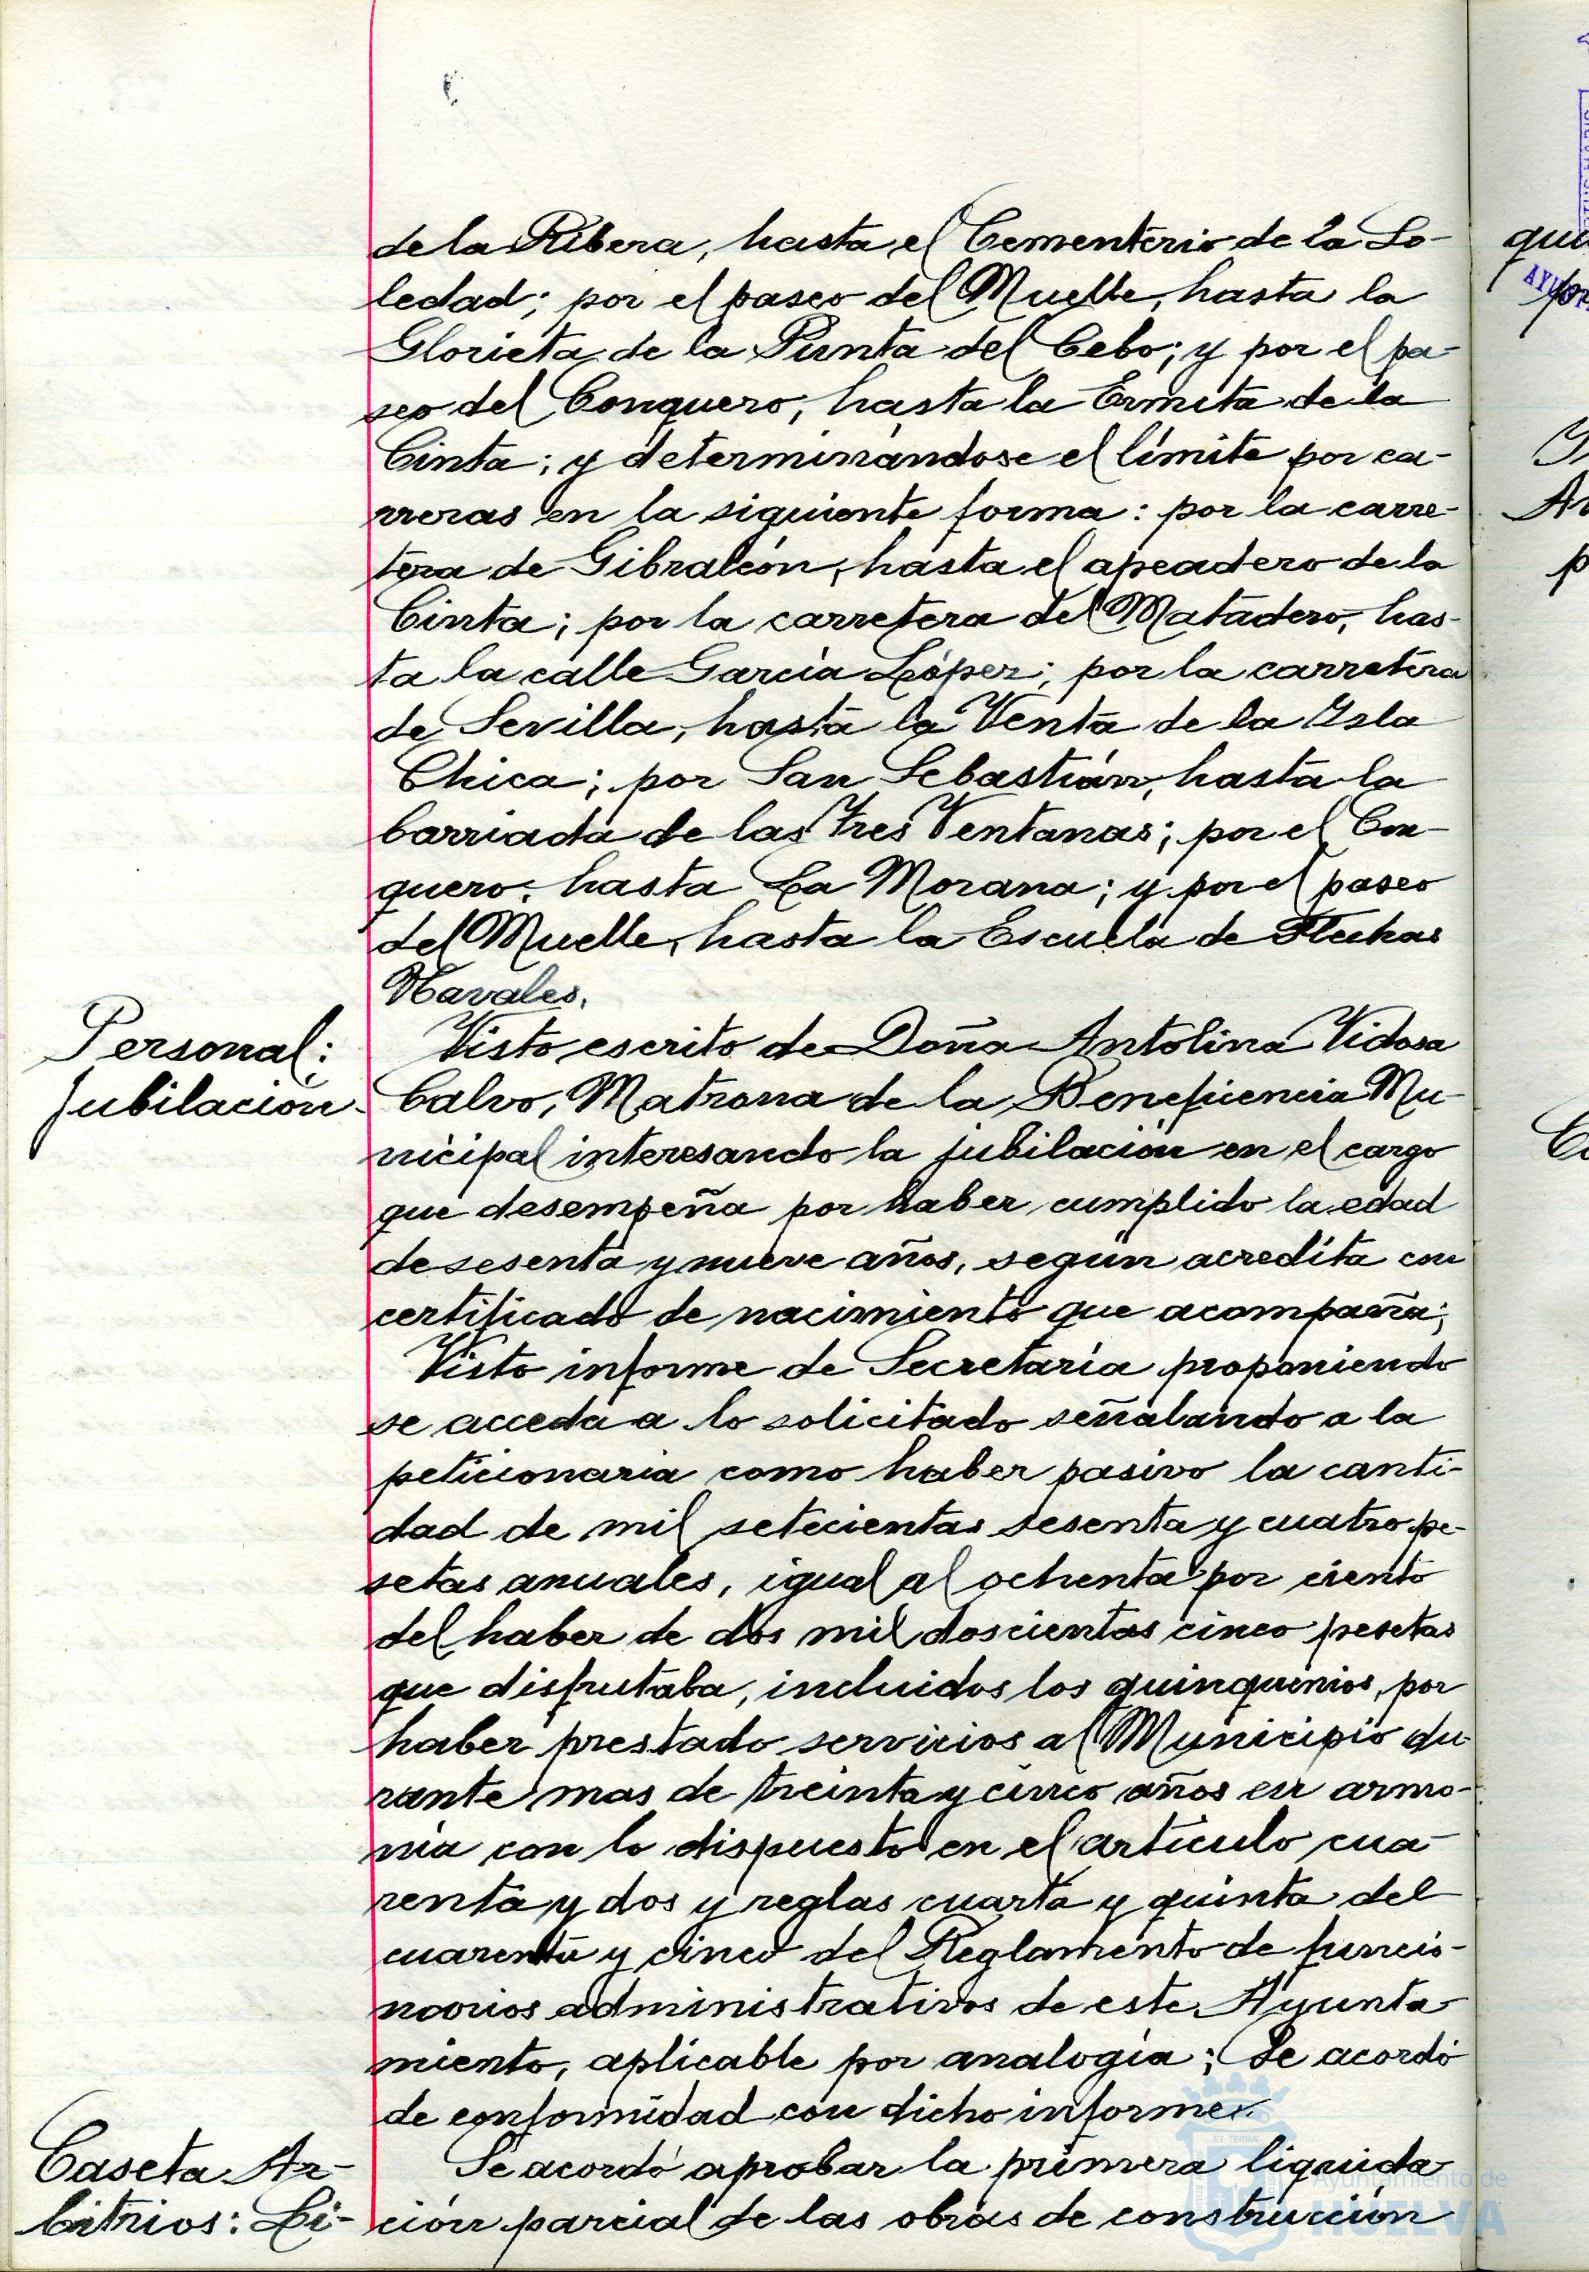 de la Ribera, hasta el Cementerio de la So-
ledad; por el paseo del Muelle, hasta la
Glorieta de la Punta del Cebo; y por el pa-
seo del Conquero, hasta la Ermita de la
Cinta; y determinándose el límite por ca-
rreras en la siguiente forma: por la carre-
tera de Gibraleón, hasta el apeadero de la
Cinta; por la carretera del Matadero, has-
ta la calle García López; por la carretera
de Sevilla, hasta la Venta de la Isla
Chica; por San Sebastián, hasta la
barriada de las Tres Ventanas; por el Con-
quero, hasta La Morana; y por el paseo
del Muelle, hasta la Escuela de Flechas
Navales.
Personal:
Jubilación.
Visto escrito de Doña Antolina Vidosa
Calvo, Matrona de la Beneficencia Mu-
nicipal interesando la jubilación en el cargo
que desempeña por haber cumplido la edad
de sesenta y nueve años, según acredita con
certificado de nacimiento que acompaña;
Visto informe de Secretaría proponiendo
se acceda a lo solicitado señalando a la
peticionaria como haber pasivo la canti-
dad de mil setecientas sesenta y cuatro pe-
setas anuales, igual al ochenta por ciento
del haber de dos mil doscientas cinco pesetas
que disfrutaba, incluidos los quinquenios, por
haber prestado servicios al Municipio du-
rante mas de treinta y cinco años en armo-
nía con lo dispuesto en el artículo cua-
renta y dos y reglas cuarta y quinta del
cuarenta y cinco del Reglamento de funcio-
narios administrativos de este Ayunta
miento, aplicable por analogía; Se acordó
de conformidad con dicho informe.
Caseta Ar-
bitrios: Li-
Se acordó aprobar la primera liquida
ción parcial de las obras de construcción
Ayuntamiento de
HUELVA